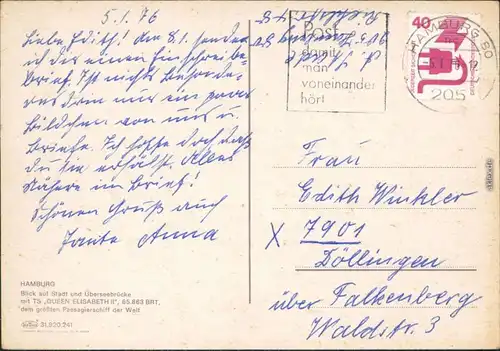 5.1.76
Liebe Edith! Am 8.1. sende
ich dir einen Einschreibe-
brief. Ist nichts besonde-
res drin nur ein paar
Bildchen von uns u.
Briefe. Ich hoffe doch daß
du sie erhälst. Alles
Nähere im Brief!
Schönen Gruß auch
Tante Anna
HAMBURG
Blick auf Stadt und Überseebrücke
mit TS „QUEEN ELISABETH II", 65.863 BRT,
dem größten Passagierschiff der Welt
31.920.241
POST -
damit
man
voneinander
hört
40
HAMBURG 80
205
Frau
Edith Winkler
x 7901
Döllingen
über Falkenberg
Waldstr. 3